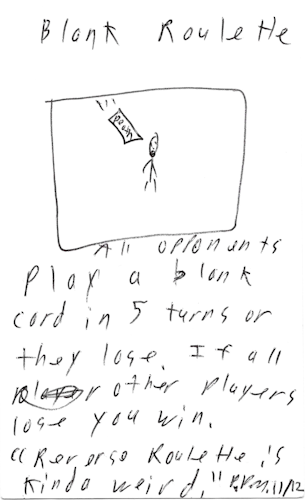 Blank Roulette
All opponents
Play a blank
card in 5 turns or
they lose. If all
other players
lose you win.
"Reverse Roulette is
kinda weird."